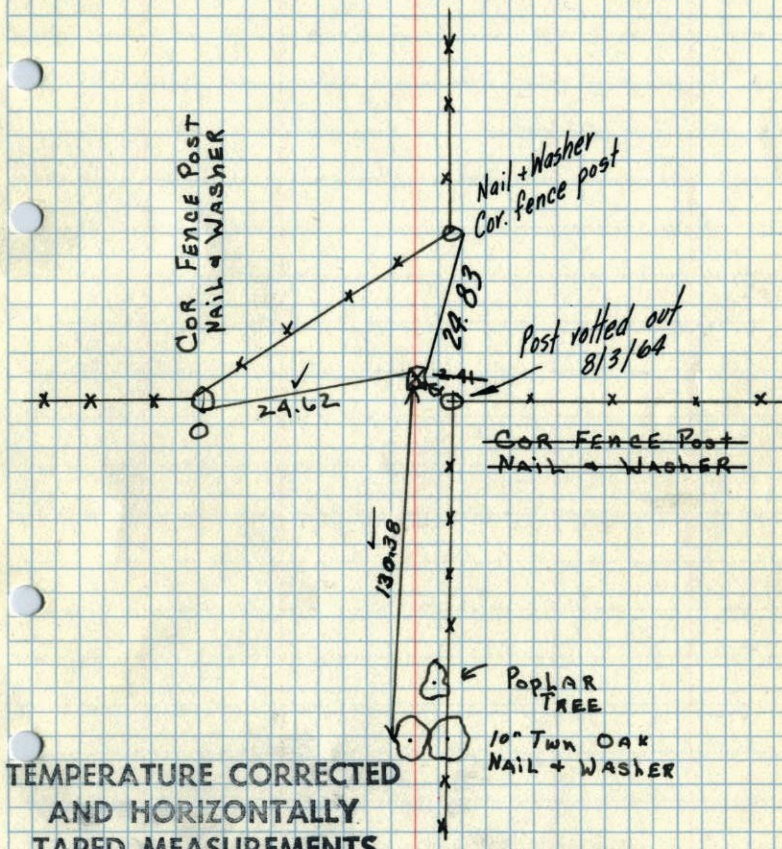 COR FENCE POST
NAIL & WASHER
Nail + Washer
Cor. fence post
24.83
Post rotted out
8/3/64
2.41
24.62
COR FENCE POST
NAIL & WASHER
130.38
POPLAR
TREE
10" TWN OAK
NAIL + WASHER
TEMPERATURE CORRECTED
AND HORIZONTALLY
TAPED MEASUREMENTS